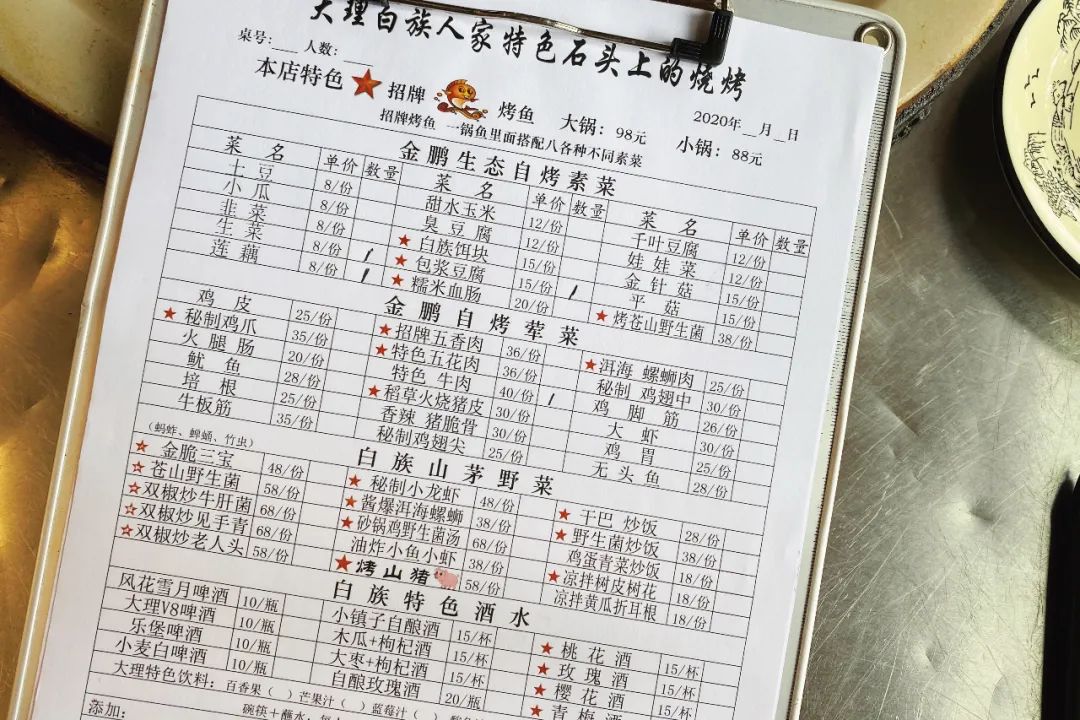 大理白族人家特色石头上的烧烤
桌号:___ 人数:____
2020年__月__日
本店特色 招牌 烤鱼 大锅：98元 小锅：88元
招牌烤鱼 一锅鱼里面搭配八各种不同素菜
金鹏生态自烤素菜
菜名 单价 数量 菜名 单价 数量 菜名 单价 数量
土豆 8/份 甜水玉米 12/份 千叶豆腐 12/份
小瓜 8/份 臭豆腐 12/份 娃娃菜 12/份
韭菜 8/份 ★白族饵块 15/份 金针菇 15/份
生菜 8/份 / ★包浆豆腐 15/份 / 平菇 15/份
莲藕 8/份 / ★糯米血肠 20/份 ★烤苍山野生菌 38/份
金鹏自烤荤菜
鸡皮 25/份 ★招牌五香肉 36/份 ★洱海 螺蛳肉 25/份
★秘制鸡爪 35/份 ★特色五花肉 36/份 秘制 鸡翅中 30/份
火腿肠 20/份 特色 牛肉 40/份 / 鸡脚筋 26/份
鱿鱼 28/份 ★稻草火烧猪皮 30/份 大虾 30/份
培根 25/份 香辣 猪脆骨 30/份 鸡胃 25/份
牛板筋 35/份 秘制鸡翅尖 25/份 无头鱼 28/份
白族山茅野菜
(蚂蚱、蝉蛹、竹虫)
★金脆三宝 48/份 ★秘制小龙虾 48/份 ★干巴 炒饭 28/份
★苍山野生菌 58/份 ★酱爆洱海螺蛳 38/份 ★野生菌炒饭 38/份
☆双椒炒牛肝菌 68/份 ★砂锅鸡野生菌汤 68/份 鸡蛋青菜炒饭 18/份
☆双椒炒见手青 68/份 油炸小鱼小虾 38/份 ★凉拌树皮树花 18/份
☆双椒炒老人头 58/份 ★烤山猪 58/份 凉拌黄瓜折耳根 18/份
白族特色酒水
风花雪月啤酒 10/瓶 小镇子自酿酒 15/杯 ★桃花酒 15/杯
大理V8啤酒 10/瓶 木瓜+枸杞酒 15/杯 ★玫瑰酒 15/杯
乐堡啤酒 10/瓶 大枣+枸杞酒 15/杯 ★樱花酒 15/杯
小麦白啤酒 10/瓶 自酿玫瑰酒 20/瓶 ★青梅酒
大理特色饮料：百香果（ ）芒果汁（ ）蓝莓汁（ ）
添加： 碗筷+蘸水：